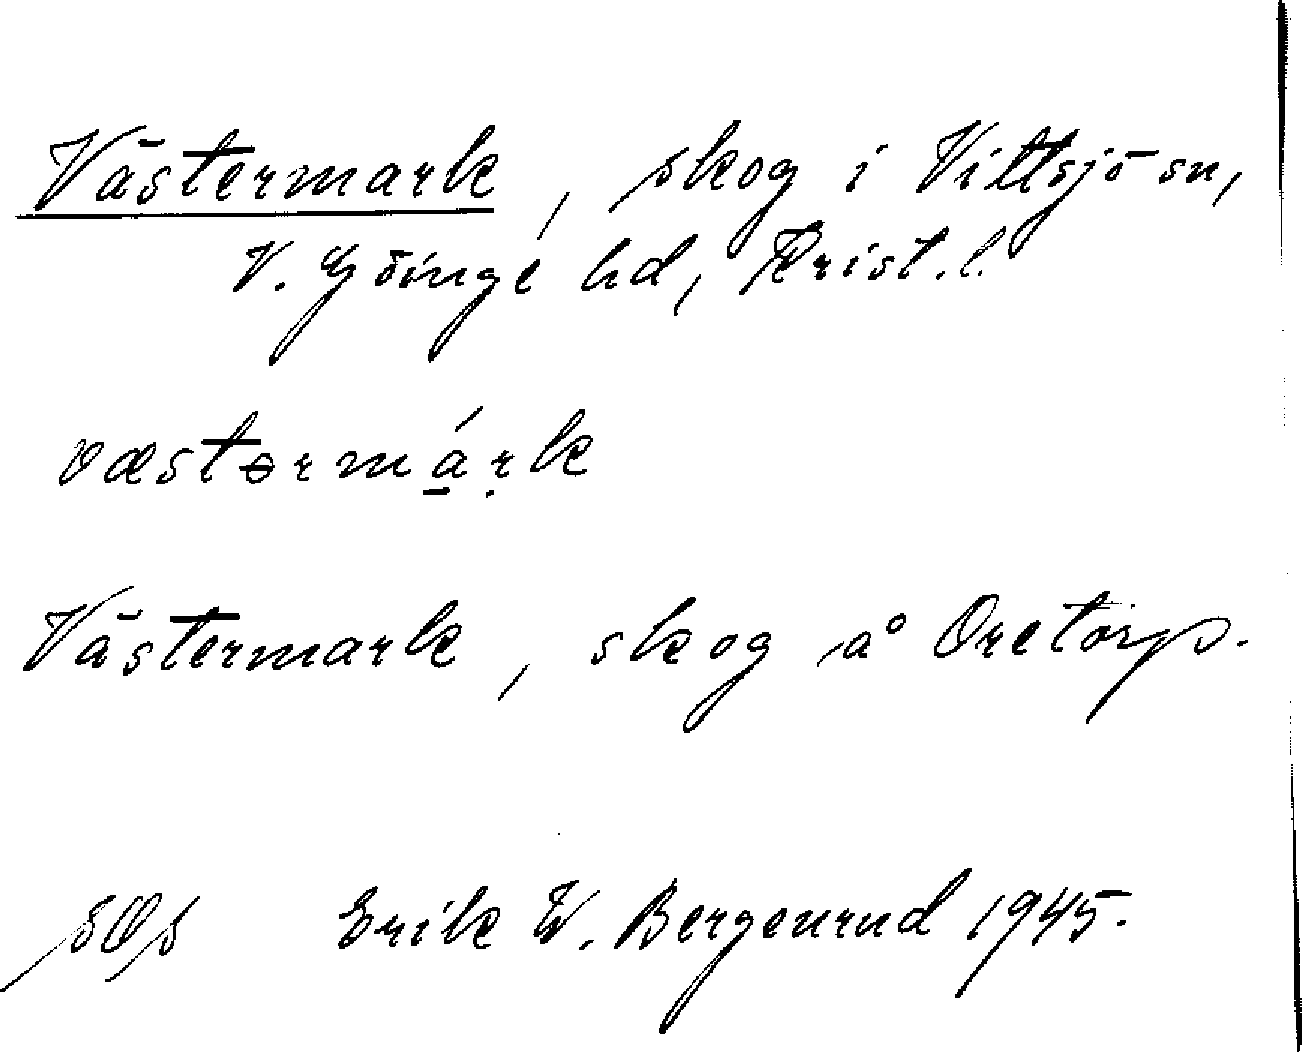 Västermark, skog i Vittsjö sn,
V. Göinge hd, Krist. l.
væstərmá̱ṛk
Västermark, skog å Oretorp.
Erik W. Bergenrud 1945.